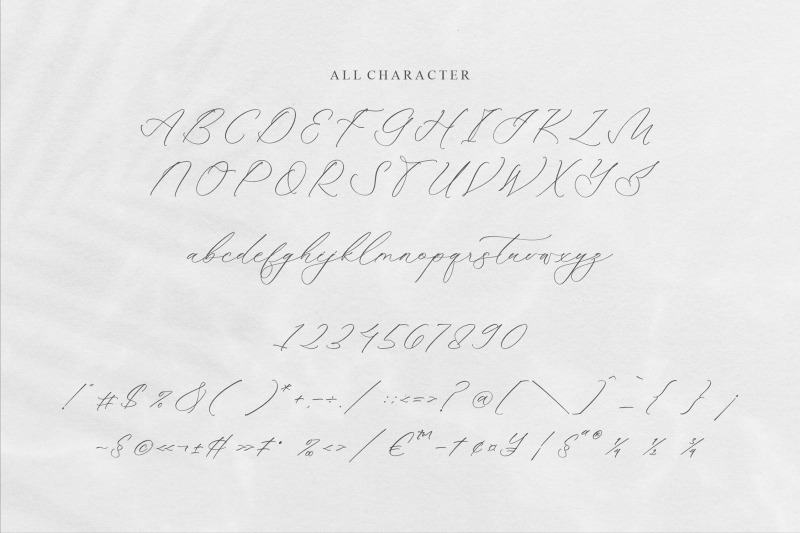 ALL CHARACTER
A B C D E F G H I J K L M
N O P Q R S T U V W X Y Z
abcdefghijklmnopqrstuvwxyz
1234567890
! " # $ % & ( ) * + , - ÷ . / : ; < = > ? @ [ \ ] ^ _ ` { } ¡
~ § © « ¬ ± » ‰ < > / € ™ – † ¢ ¤ ¥ | § ª ® ¼ ½ ¾